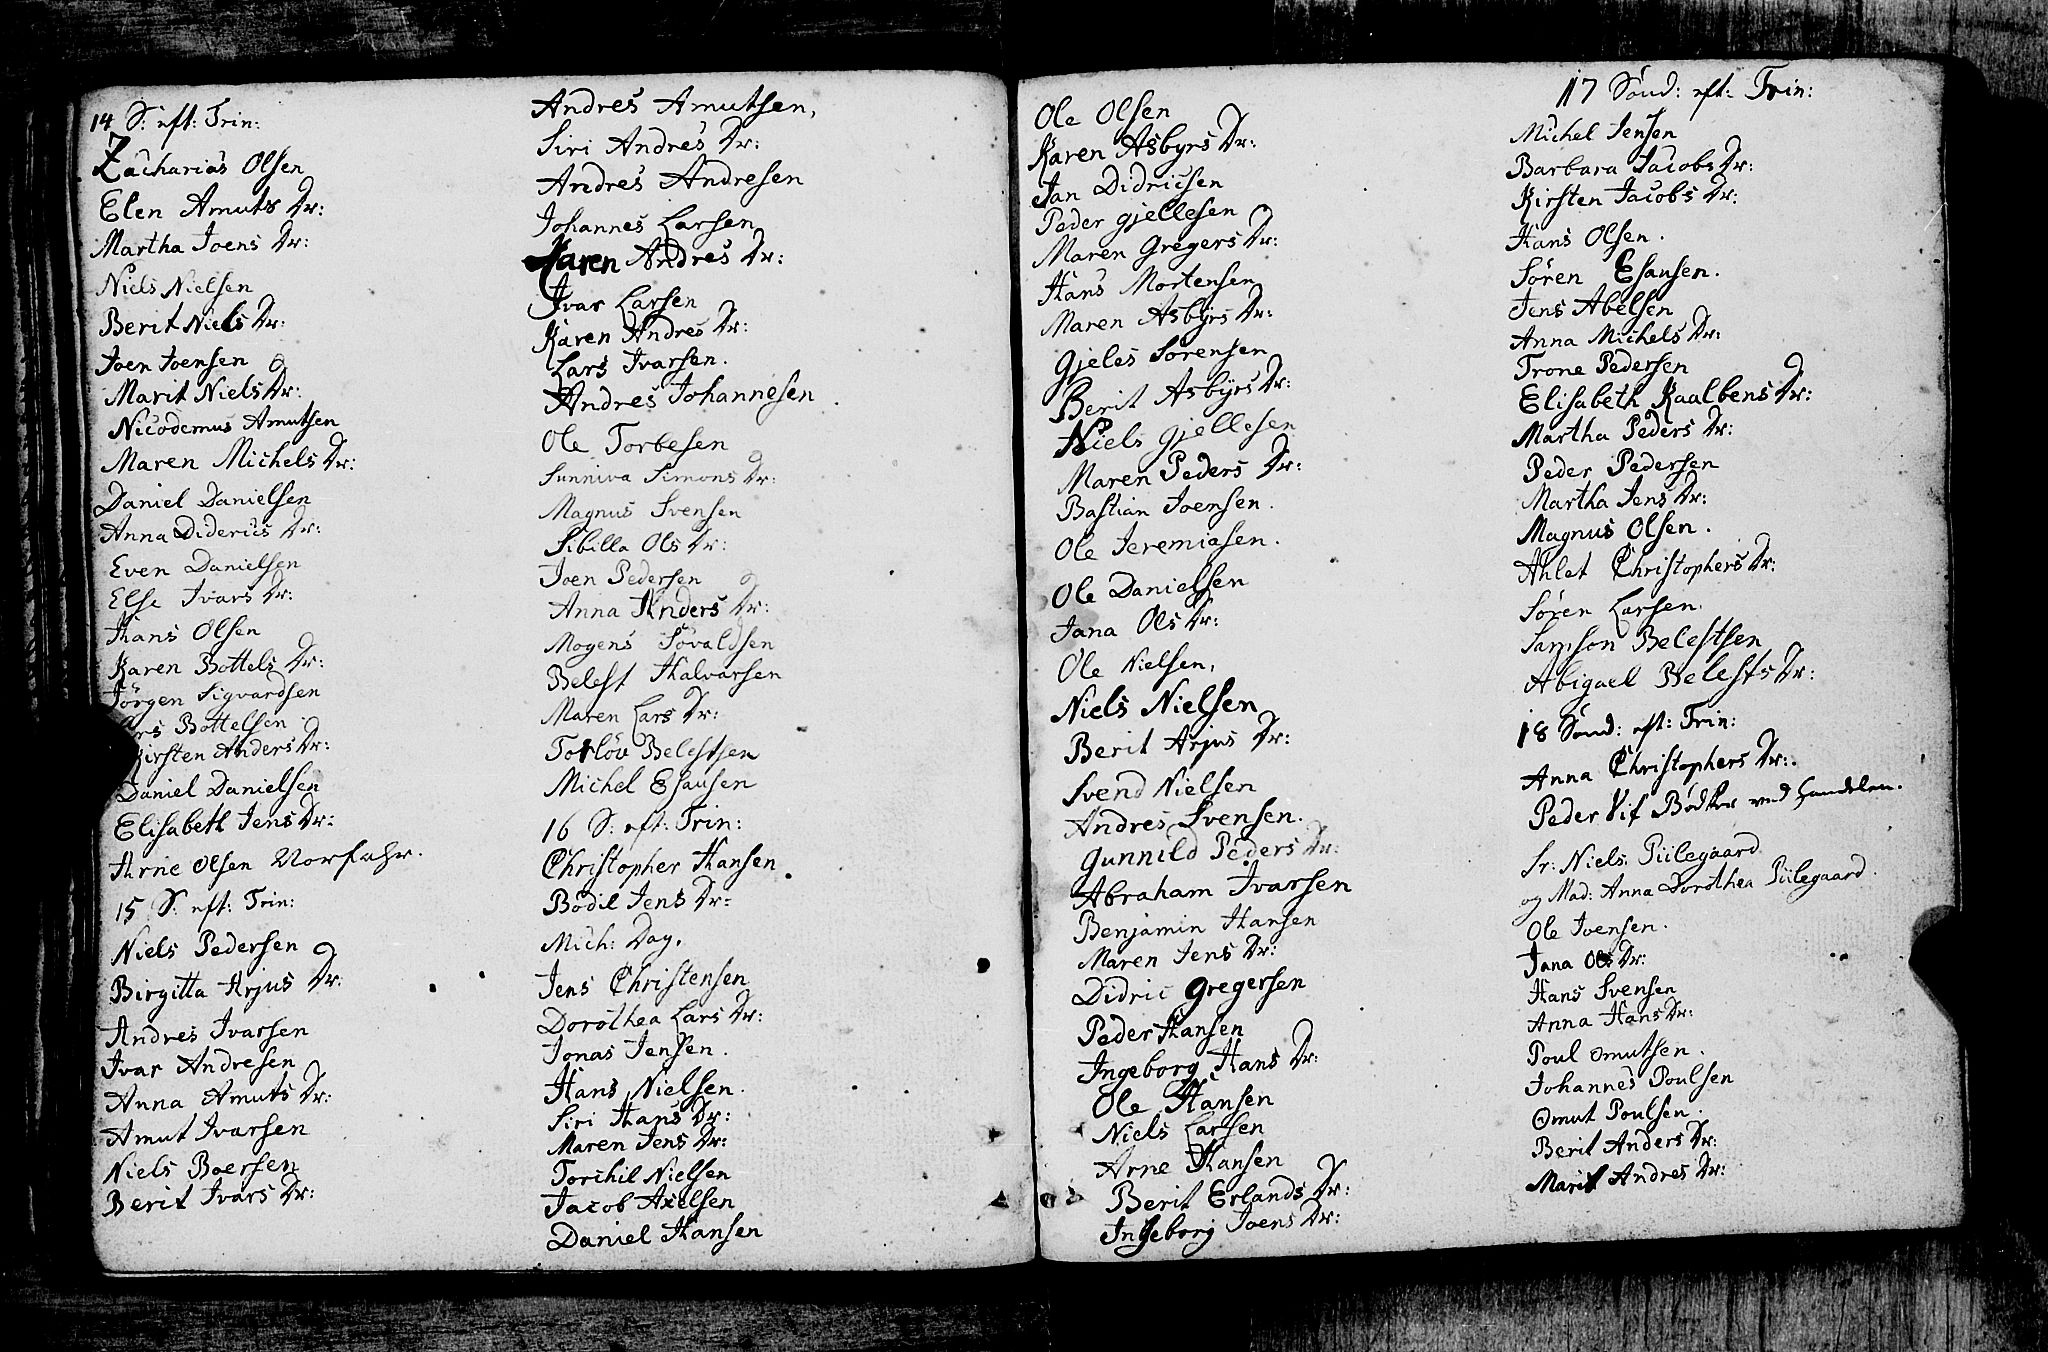 14 S: eft: Trin:
Zacharias Olsen
Elen Amuts Dr:
Martha Joens Dr:
Niels Nielsen
Berit Niels Dr:
Joen Joensen
Marit Niels Dr:
Nicodemus Amutsen
Maren Michels Dr:
Daniel Danielsen
Anna Diderics Dr:
Even Danielsen
Else Ivars Dr:
Hans Olsen
Karen Bottels Dr:
Jörgen Sigvardsen
Bottelsen
Kirsten Anders Dr:
Daniel Danielsen
Elisabeth Jens Dr:
Arne Olsen Vorfahr.
15 S: eft: Trin:
Niels Pedersen
Birgitta Arjus Dr:
Andres Ivarsen
Ivar Andresen
Anna Amuts Dr:
Amut Ivarsen
Niels Boersen
Berit Ivars Dr:
Andres Amutsen,
Siri Andres Dr:
Andres Andresen
Johannes Larsen
Karen Andres Dr:
Ivar Larsen
Karen Andres Dr:
Lars Ivarsen.
Andres Johannesen
Ole Torbesen
Sunniva Simons Dr:
Magnus Svensen
Sibilla Ols Dr:
Joen Pedersen
Anna Anders Dr:
Mogens Sövaldsen
Belest Halvarsen
Maren Lars Dr:
Torlöv Belestsen
Michel Esausen
16 S: eft: Trin:
Christopher Hansen
Bodil Jens Dr:
Mich: Dag.
Jens Christensen
Dorothea Lars Dr:
Jonas Jensen.
Hans Nielsen.
Siri Hans Dr:
Maren Jens Dr:
Torchil Nielsen
Jacob Axelsen
Daniel Hansen
Ole Olsen
Karen Asbyrs Dr:
Jan Didricsen
Peder Gjellesen
Maren Gregers Dr:
Hans Mortensen
Maren Asbyrs Dr:
Gjeles Sörensen
Berit Asbyrs Dr:
Niels Gjellesen
Maren Peders Dr:
Bastian Joensen.
Ole Jeremiasen.
Ole Danielsen
Jana Ols Dr:
Ole Nielsen,
Niels Nielsen
Berit Arjus Dr:
Svend Nielsen
Andres Svensen.
Gunnild Peders Dr:
Abraham Ivarsen
Benjamin Hansen
Maren Jens Dr:
Didric Gregersen
Peder Hansen
Ingeborg Hans Dr:
Ole Hansen
Niels Larsen
Arne Hansen
Berit Erlands Dr:
Ingeborg Joens Dr:
17 Sönd: eft: Trin:
Michel Jensen
Barbara Jacobs Dr:
Kirsten Jacobs Dr:
Hans Olsen.
Sören Esausen.
Jens Abelsen
Anna Michels Dr:
Trone Pedersen
Elisabeth Kaalbens Dr:
Martha Peders Dr:
Peder Pedersen
Martha Jens Dr:
Magnus Olsen.
Ahlet Christophers Dr:
Sören Larsen.
Samson Belestsen
Abigael Belests Dr:
18 Sönd: eft: Trin:
Anna Christophers Dr:
Peder Vif Bödker ved Handelen.
Sr: Niels Piilegaard
og Mad: Anna Dorothea Piilegaard.
Ole Joensen.
Jana Ols Dr:
Hans Svensen
Anna Hans Dr:
Poul Omutsen.
Johannes Poulsen
Omut Poulsen.
Berit Anders Dr:
Marit Andres Dr: